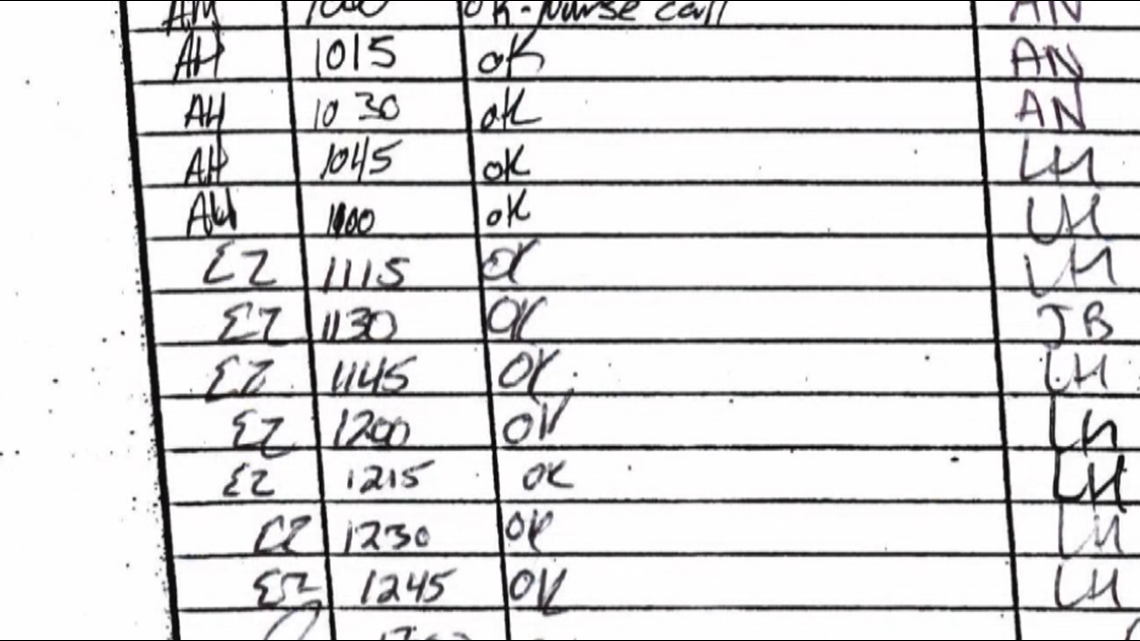 1000 OK-Nurse call AN
AH 1015 OK AN
AH 1030 OK AN
AH 1045 OK LH
AH 1100 OK LH
EZ 1115 OK LH
EZ 1130 OK JB
EZ 1145 OK LH
EZ 1200 OK LH
EZ 1215 OK LH
EZ 1230 OK LH
EZ 1245 OK LH